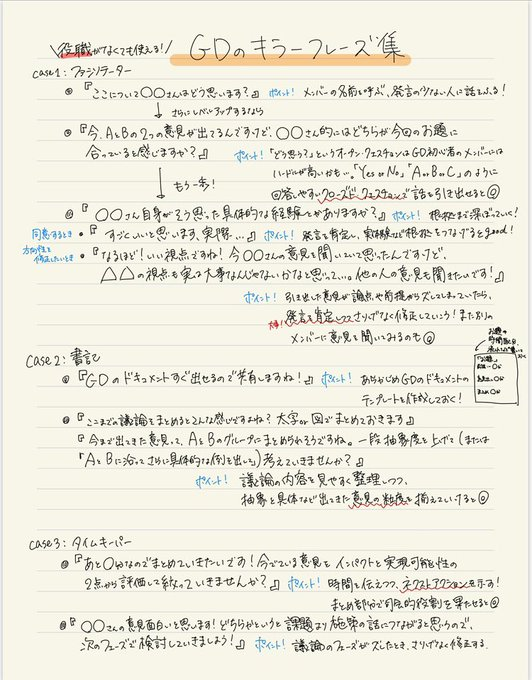 役職がなくても使える！ GDのキラーフレーズ集
case1：ファシリテーター
◎『ここについて〇〇さんはどう思います？』 ポイント！ メンバーの名前を呼ぶ、発言の少ない人に話をふる！
↓ さらにレベルアップするなら
◎『今、AとBの2つの意見が出てるんですけど、〇〇さん的にはどちらが今回のお題に
合っていると感じますか？』 ポイント！ 「どう思う？」というオープンクエスチョンはGD初心者のメンバーには
ハードルが高いかも…。「Yes or No」「A or B or C」のように
回答しやすいクローズドクエスチョンで話を引き出せると◎
↓ もう一歩！
◎『〇〇さん自身がそう思った具体的な経験とかありますか？』 ポイント！ 根拠まで深ぼっていく！
同意するとき・『すごくいいと思います、実際、…』 ポイント！ 発言を肯定し、実体験など根拠をつなげるとgood！
方向性を修正したいとき・『なるほど！いい視点ですね！今〇〇さんの意見を聞いていて思ったんですけど、
△△の視点も実は大事なんじゃないかなと思ってい…。他の人の意見も聞きたいです！』
ポイント！ 引き出した意見が論点や前提からズレてしまっていたら、
大事！ 発言を肯定しつつさりげなく修正していこう！まわりの
メンバーに意見を聞いてみるのも◎
case2：書記
◎『GDのドキュメントすぐ出せるので共有しますね！』 ポイント！ あらかじめGDのドキュメントの
テンプレートを作成しておく！
お題の
時間配分
◎『ここまでの議論をまとめるとこんな感じですよね？太字or図でまとめておきます』
『今まで出てきた意見って、AとBのグループにまとめられそうですね。一段抽象度を上げて（または
「AとBに沿ってさらに具体的な例を出して」）考えていきませんか？』
ポイント！ 議論の内容を見やすく整理しつつ、
抽象と具体など出てきた意見の粒度を揃えていけると◎
case3：タイムキーパー
◎『あと〇分なのでまとめていきたいです！今でている意見をインパクトと実現可能性の
2点から評価して絞っていきませんか？』 ポイント！ 時間を伝えつつ、ネクストアクションを示す！
まとめ部分で司会的役割を果たせると◎
◎『〇〇さんの意見面白いと思います！どちらかというと課題より施策の話につながると思うので、
次のフェーズで検討していきましょう！』 ポイント！ 議論のフェーズがズレたとき、さりげなく修正する。